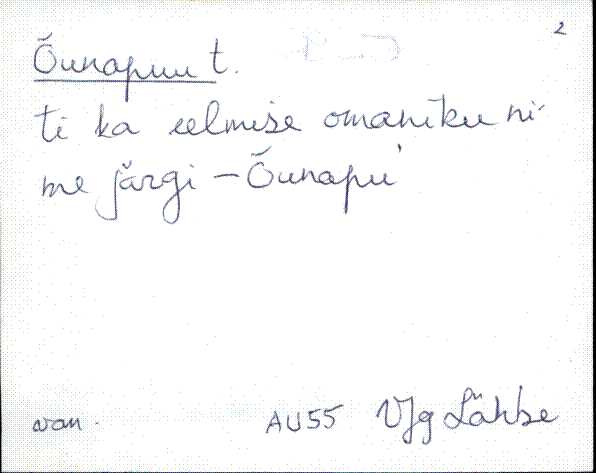 2
Õunapuu t.
ti ka eelmise omaniku ni-
me järgi – Õunapu'
van. AU55 VJg Lähte